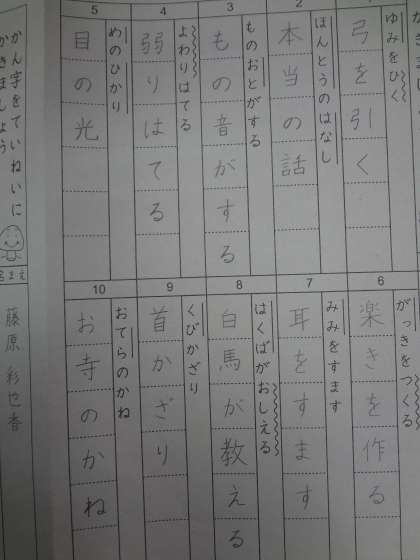 ゆみをひく
弓を引く
2
ほんとうのはなし
本当の話
3
ものおとがする
もの音がする
4
よわりはてる
弱りはてる
5
めのひかり
目の光
6
がっきをつくる
楽きを作る
7
みみをすます
耳をすます
8
はくばがおしえる
白馬が教える
9
くびかざり
首かざり
10
おてらのかね
お寺のかね
かん字をていねいに
かきましょう
名まえ
藤原 彩也香